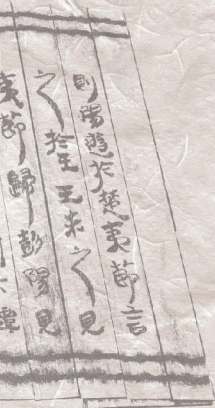 則陽遊於楚夷節言
之於王王未之見
夷節歸彭陽見
譚